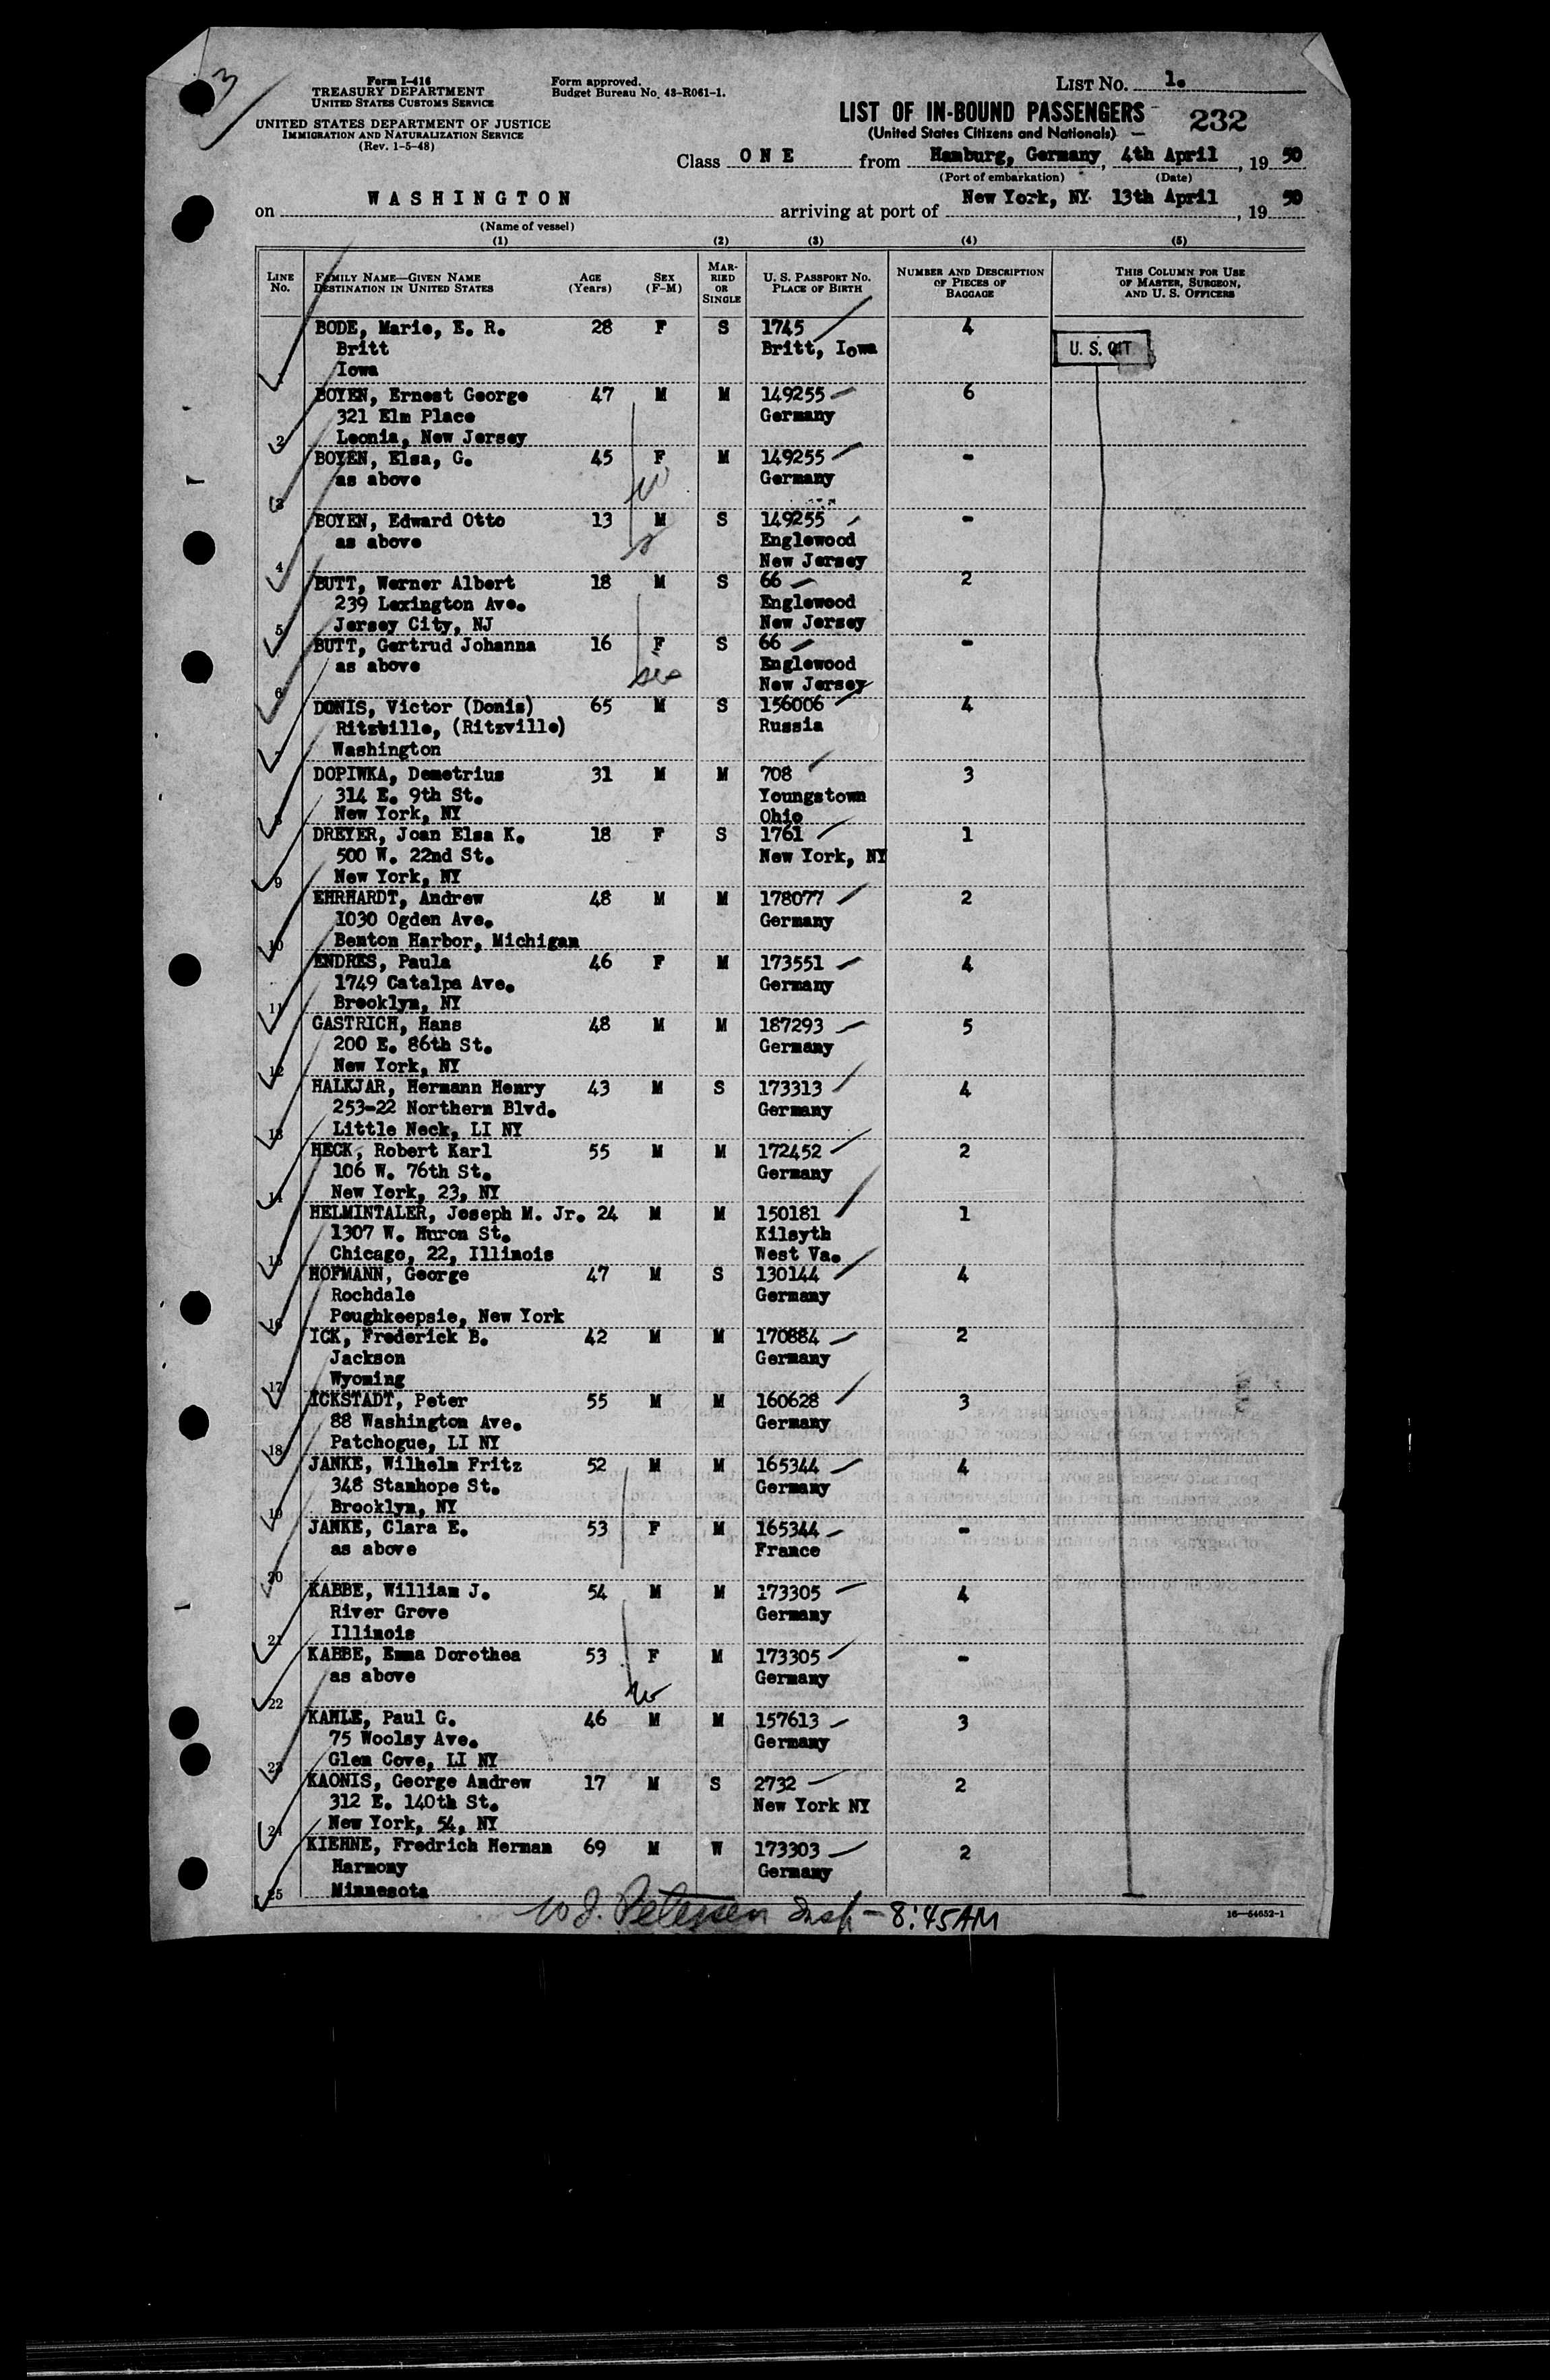 3
Form I-416
TREASURY DEPARTMENT
UNITED STATES CUSTOMS SERVICE
UNITED STATES DEPARTMENT OF JUSTICE
IMMIGRATION AND NATURALIZATION SERVICE
(Rev. 1-5-48)
Form approved.
Budget Bureau No. 43-R061-1.
LIST No. 1.
LIST OF IN-BOUND PASSENGERS 232
(United States Citizens and Nationals)
Class ONE from Hamburg, Germany, 4th April, 19 50
(Port of embarkation) (Date)
on WASHINGTON arriving at port of New York, NY 13th April, 19 50
(Name of vessel)
(1) (2) (3) (4) (5)
LINE No. FAMILY NAME—GIVEN NAME DESTINATION IN UNITED STATES AGE (Years) SEX (F-M) MARRIED OR SINGLE U. S. PASSPORT No. PLACE OF BIRTH NUMBER AND DESCRIPTION OF PIECES OF BAGGAGE THIS COLUMN FOR USE OF MASTER, SURGEON, AND U. S. OFFICERS
BODE, Marie, E. R. 28 F S 1745 4
Britt Britt, Iowa U. S. CIT
Iowa
BOYEN, Ernest George 47 M M 149255 6
321 Elm Place Germany
2 Leonia, New Jersey
BOYEN, Elsa, G. 45 F M 149255 -
as above Germany
3
BOYEN, Edward Otto 13 M S 149255 -
as above Englewood
4 New Jersey
BUTT, Werner Albert 18 M S 66 2
239 Lexington Ave. Englewood
5 Jersey City, NJ New Jersey
BUTT, Gertrud Johanna 16 F S 66 -
as above Englewood
6 New Jersey
DONIS, Victor (Donis) 65 M S 156006 4
Ritzbille, (Ritzville) Russia
7 Washington
DOPIWKA, Demetrius 31 M M 708 3
314 E. 9th St. Youngstown
8 New York, NY Ohio
DREYER, Joan Elsa K. 18 F S 1761 1
500 W. 22nd St. New York, NY
9 New York, NY
EHRHARDT, Andrew 48 M M 178077 2
1030 Ogden Ave. Germany
10 Benton Harbor, Michigan
ENDRES, Paula 46 F M 173551 4
1749 Catalpa Ave. Germany
11 Brooklyn, NY
GASTRICH, Hans 48 M M 187293 5
200 E. 86th St. Germany
12 New York, NY
HALKJAR, Hermann Henry 43 M S 173313 4
253-22 Northern Blvd. Germany
13 Little Neck, LI NY
HECK, Robert Karl 55 M M 172452 2
106 W. 76th St. Germany
14 New York, 23, NY
HELMINTALER, Joseph M. Jr. 24 M M 150181 1
1307 W. Huron St. Kilsyth
15 Chicago, 22, Illinois West Va.
HOFMANN, George 47 M S 130144 4
Rochdale Germany
16 Poughkeepsie, New York
ICK, Frederick B. 42 M M 170884 2
Jackson Germany
17 Wyoming
ICKSTADT, Peter 55 M M 160628 3
88 Washington Ave. Germany
18 Patchogue, LI NY
JANKE, Wilhelm Fritz 52 M M 165344 4
348 Stanhope St. Germany
19 Brooklyn, NY
JANKE, Clara E. 53 F M 165344 -
as above France
20
KABBE, William J. 54 M M 173305 4
River Grove Germany
21 Illinois
KABBE, Emma Dorothea 53 F M 173305 -
as above Germany
22
KAHLE, Paul G. 46 M M 157613 3
75 Woolsy Ave. Germany
23 Glen Cove, LI NY
KAONIS, George Andrew 17 M S 2732 2
312 E. 140th St. New York NY
24 New York, 54, NY
KIEHNE, Fredrich Herman 69 M W 173303 2
Harmony Germany
25 Minnesota
W J. Petersen Insp - 8:45AM
16—54652-1